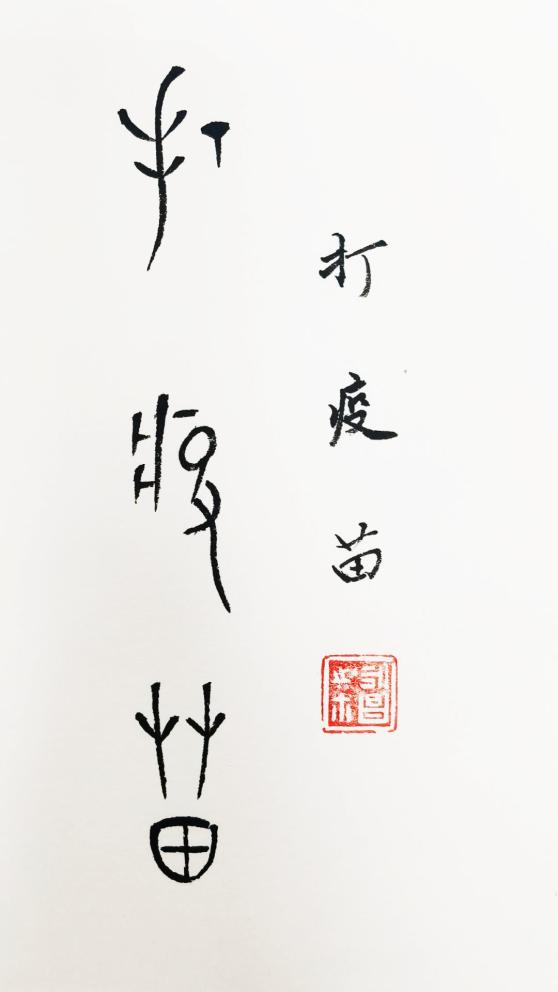 打疫苗
打疫苗